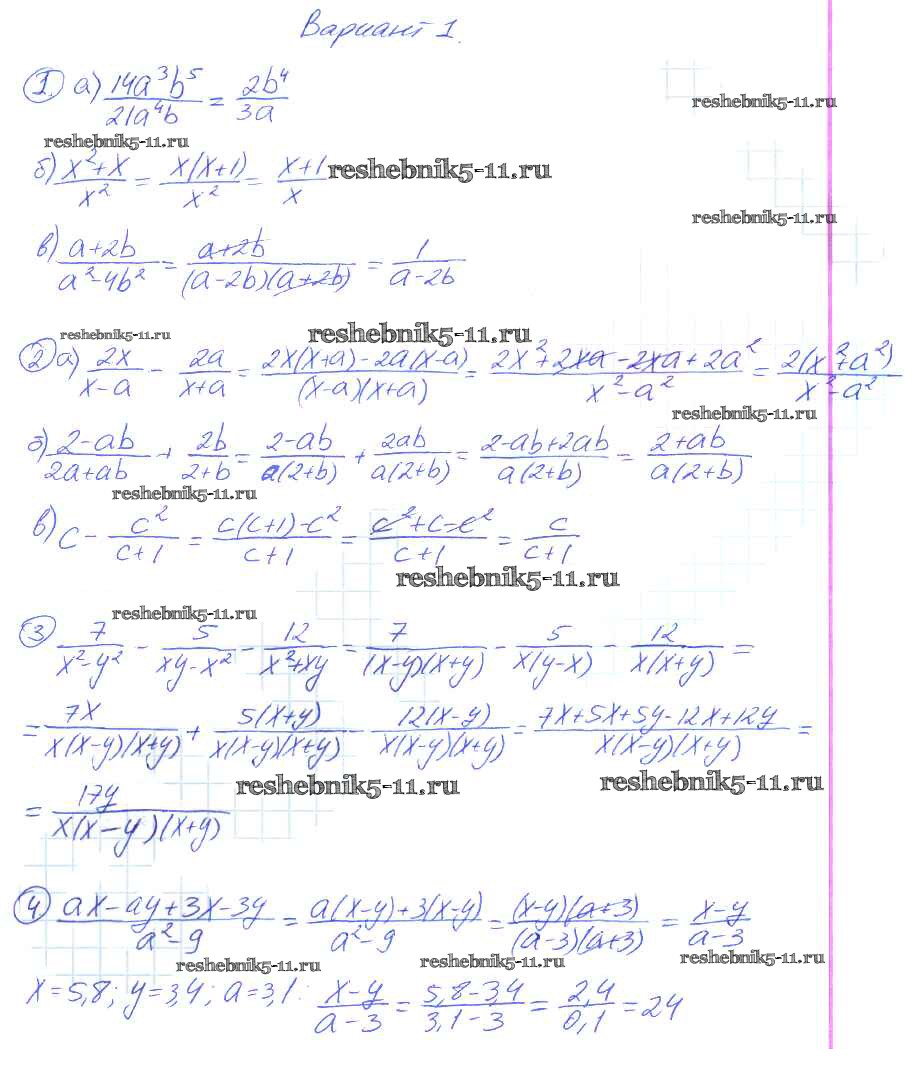 Вариант 1.
1. а) 14a³b⁵/21a⁴b = 2b⁴/3a
reshebnik5-11.ru
reshebnik5-11.ru
б) x²+x/x² = x(x+1)/x² = x+1/x reshebnik5-11.ru
reshebnik5-11.ru
в) a+2b/a²-4b² = a+2b/(a-2b)(a+2b) = 1/a-2b
reshebnik5-11.ru reshebnik5-11.ru
2 а) 2x/x-a - 2a/x+a = 2x(x+a)-2a(x-a)/(x-a)(x+a) = 2x²+2xa-2xa+2a²/x²-a² = 2(x²+a²)/x²-a²
reshebnik5-11.ru
б) 2-ab/2a+ab + 2b/2+b = 2-ab/a(2+b) + 2ab/a(2+b) = 2-ab+2ab/a(2+b) = 2+ab/a(2+b)
reshebnik5-11.ru
в) c - c²/c+1 = c(c+1)-c²/c+1 = c²+c-c²/c+1 = c/c+1
reshebnik5-11.ru
reshebnik5-11.ru
3 7/x²-y² - 5/xy-x² - 12/x²+xy = 7/(x-y)(x+y) - 5/x(y-x) - 12/x(x+y) =
= 7x/x(x-y)(x+y) + 5(x+y)/x(x-y)(x+y) - 12(x-y)/x(x-y)(x+y) = 7x+5x+5y-12x+12y/x(x-y)(x+y) =
reshebnik5-11.ru reshebnik5-11.ru
= 17y/x(x-y)(x+y)
4 ax-ay+3x-3y/a²-9 = a(x-y)+3(x-y)/a²-9 = (x-y)(a+3)/(a-3)(a+3) = x-y/a-3
reshebnik5-11.ru reshebnik5-11.ru reshebnik5-11.ru
x=5,8; y=3,4; a=3,1: x-y/a-3 = 5,8-3,4/3,1-3 = 2,4/0,1 = 24